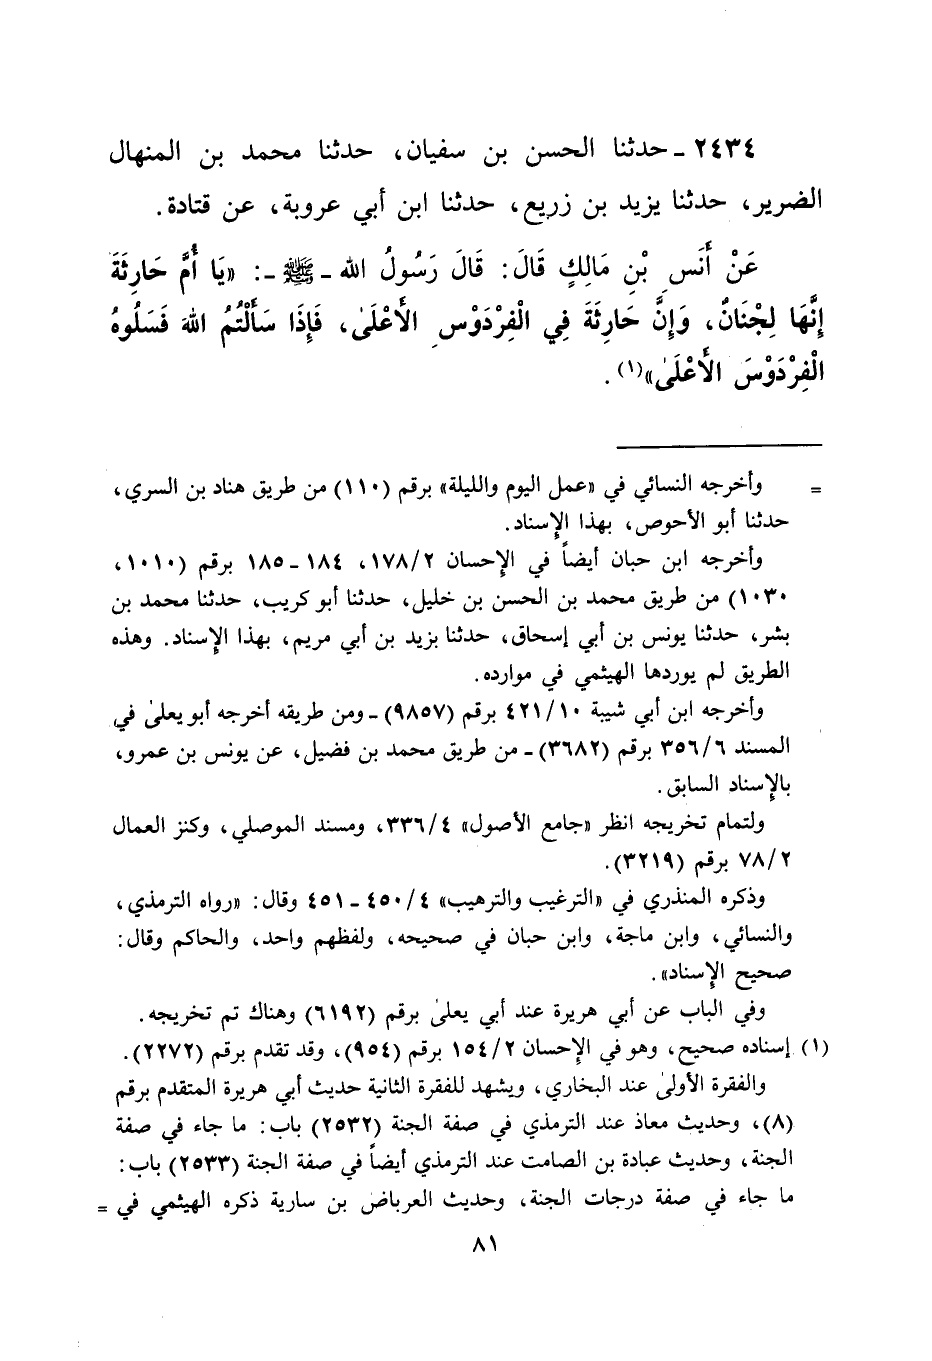 ٢٤٣٤ ـ حدثنا الحسن بن سفيان، حدثنا محمد بن المنهال
الضرير، حدثنا يزيد بن زريع، حدثنا ابن أبي عروبة، عن قتادة.
عَنْ أَنَسِ بْنِ مَالِكٍ قَالَ: قَالَ رَسُولُ الله ـ ﷺ ـ: «يَا أُمَّ حَارِثَةَ
إِنَّهَا لَجِنَانٌ، وَإِنَّ حَارِثَةَ فِي الْفِرْدَوْسِ الأَعْلَىٰ، فَإِذَا سَأَلْتُمُ اللهَ فَسَلُوهُ
الْفِرْدَوْسَ الأَعْلَىٰ»(١).
= وأخرجه النسائي في «عمل اليوم والليلة» برقم (١١٠) من طريق هناد بن السري،
حدثنا أبو الأحوص، بهذا الإسناد.
وأخرجه ابن حبان أيضاً في الإحسان ١٧٨/٢، ١٨٤ ـ ١٨٥ برقم (١٠١٠،
١٠٣٠) من طريق محمد بن الحسن بن خليل، حدثنا أبو كريب، حدثنا محمد بن
بشر، حدثنا يونس بن أبي إسحاق، حدثنا بزيد بن أبي مريم، بهذا الإسناد. وهذه
الطريق لم يوردها الهيثمي في موارده.
وأخرجه ابن أبي شيبة ٤٢١/١٠ برقم (٩٨٥٧) ـ ومن طريقه أخرجه أبو يعلىٰ في
المسند ٣٥٦/٦ برقم (٣٦٨٢) ـ من طريق محمد بن فضيل، عن يونس بن عمرو،
بالإسناد السابق.
ولتمام تخريجه انظر «جامع الأصول» ٣٣٦/٤، ومسند الموصلي، وكنز العمال
٧٨/٢ برقم (٣٢١٩).
وذكره المنذري في «الترغيب والترهيب» ٤٥٠/٤ ـ ٤٥١ وقال: «رواه الترمذي،
والنسائي، وابن ماجة، وابن حبان في صحيحه، ولفظهم واحد، والحاكم وقال:
صحيح الإسناد».
وفي الباب عن أبي هريرة عند أبي يعلىٰ برقم (٦١٩٢) وهناك تم تخريجه.
(١) إسناده صحيح، وهو في الإحسان ١٥٤/٢ برقم (٩٥٤)، وقد تقدم برقم (٢٢٧٢).
والفقرة الأولىٰ عند البخاري، ويشهد للفقرة الثانية حديث أبي هريرة المتقدم برقم
(٨)، وحديث معاذ عند الترمذي في صفة الجنة (٢٥٣٢) باب: ما جاء في صفة
الجنة، وحديث عبادة بن الصامت عند الترمذي أيضاً في صفة الجنة (٢٥٣٣) باب:
ما جاء في صفة درجات الجنة، وحديث العرباض بن سارية ذكره الهيثمي في =
٨١